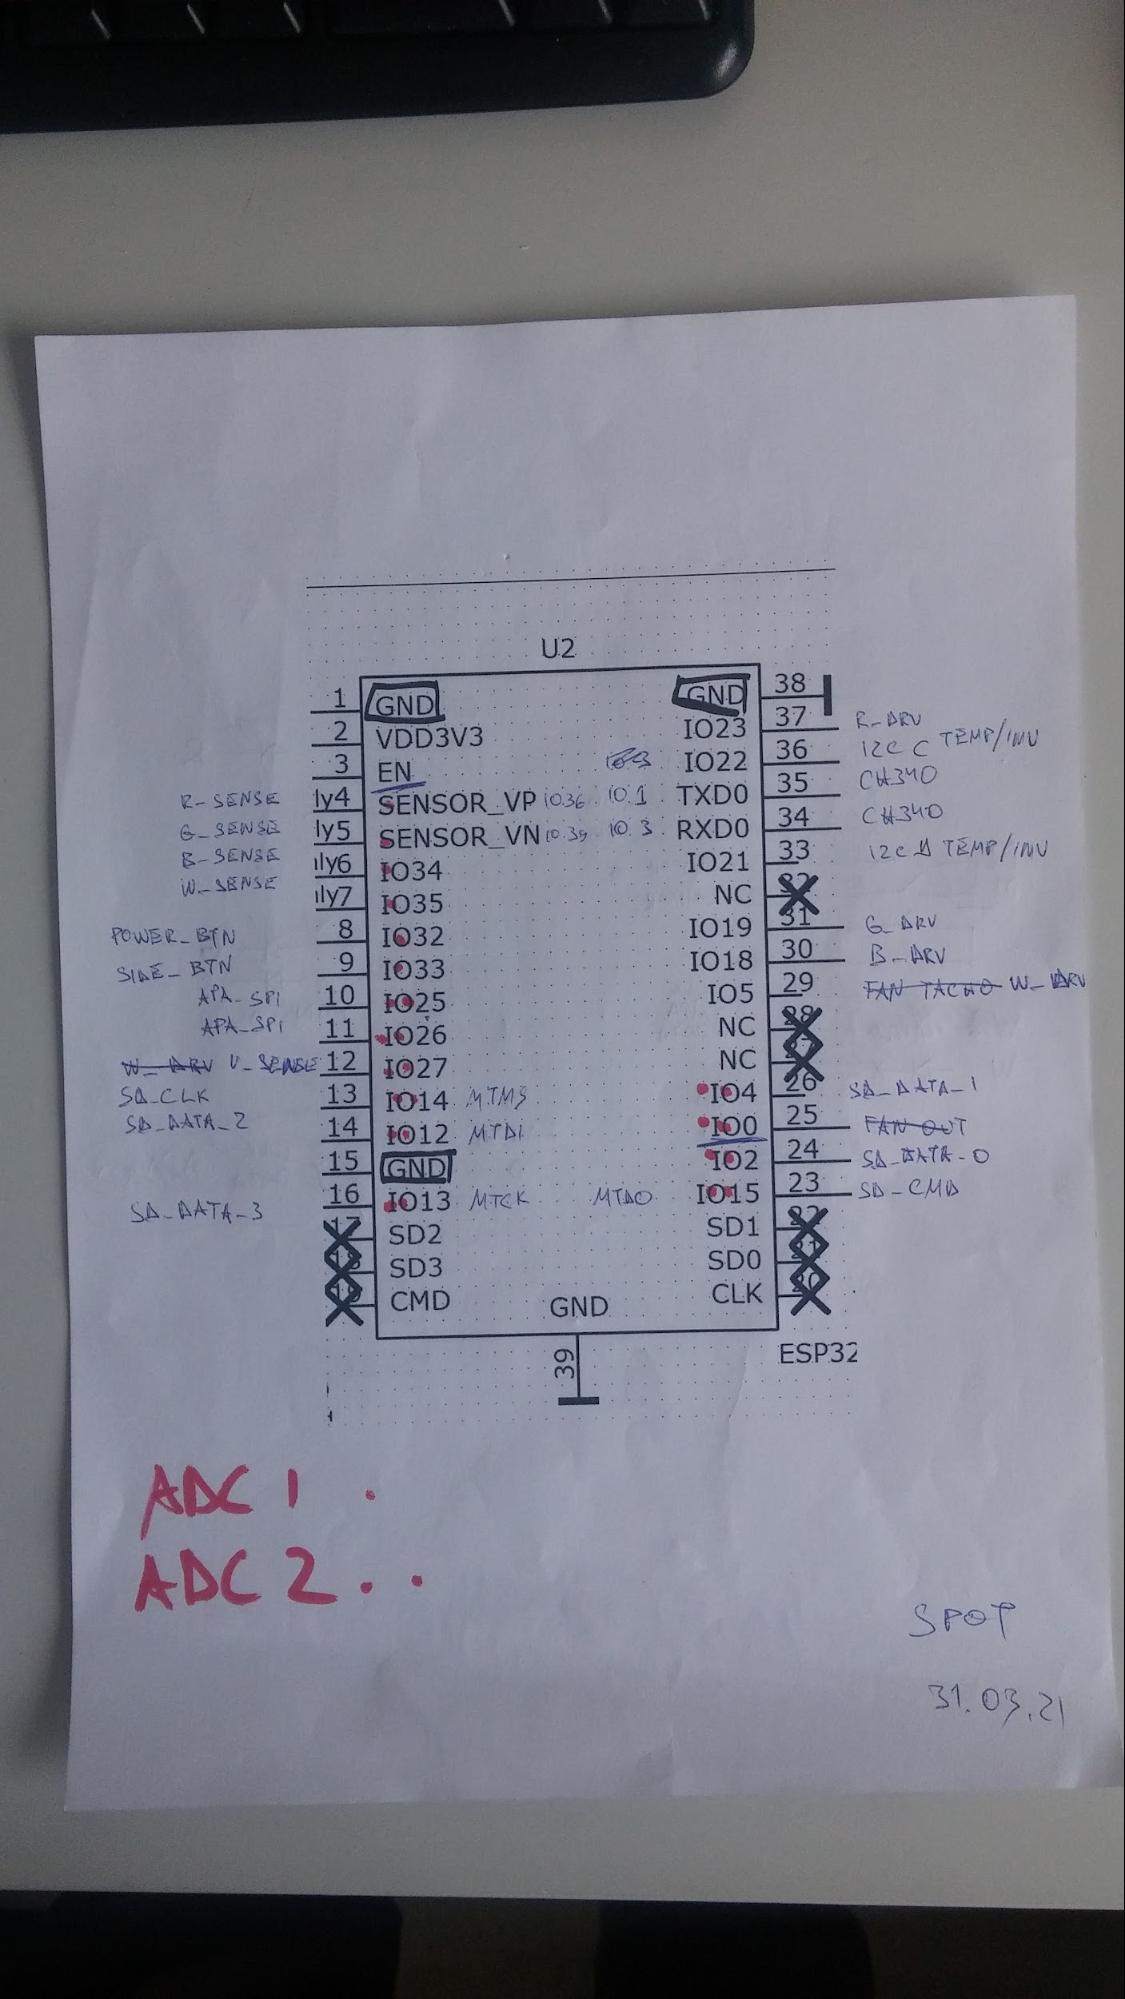 U2
1 GND
2 VDD3V3
3 EN
R-SENSE ly4 SENSOR_VP IO36
G_SENSE ly5 SENSOR_VN IO.39
B-SENSE ily6 IO34
W_SENSE ily7 IO35
POWER_BTN 8 IO32
SIDE_BTN 9 IO33
APA_SPI 10 IO25
APA_SPI 11 IO26
W_DRV V_SENSE 12 IO27
SD_CLK 13 IO14 MTMS
SD_DATA_2 14 IO12 MTDI
15 GND
SD_DATA_3 16 IO13 MTCK
SD2
SD3
CMD
GND 38
IO23 37 R_DRV
IO22 36 I2C C TEMP/INV
IO.1 TXD0 35 CH340
IO.3 RXD0 34 CH340
IO21 33 I2C D TEMP/INV
NC
IO19 31 G_DRV
IO18 30 B_DRV
IO5 29 FAN TACHO W_DRV
NC
NC
IO4 26 SD_DATA_1
IO0 25 FAN OUT
IO2 24 SD_DATA_0
MTDO IO15 23 SD_CMD
SD1
SD0
CLK
GND
39
ESP32
ADC 1 .
ADC 2 . .
SPOT
31.03.21